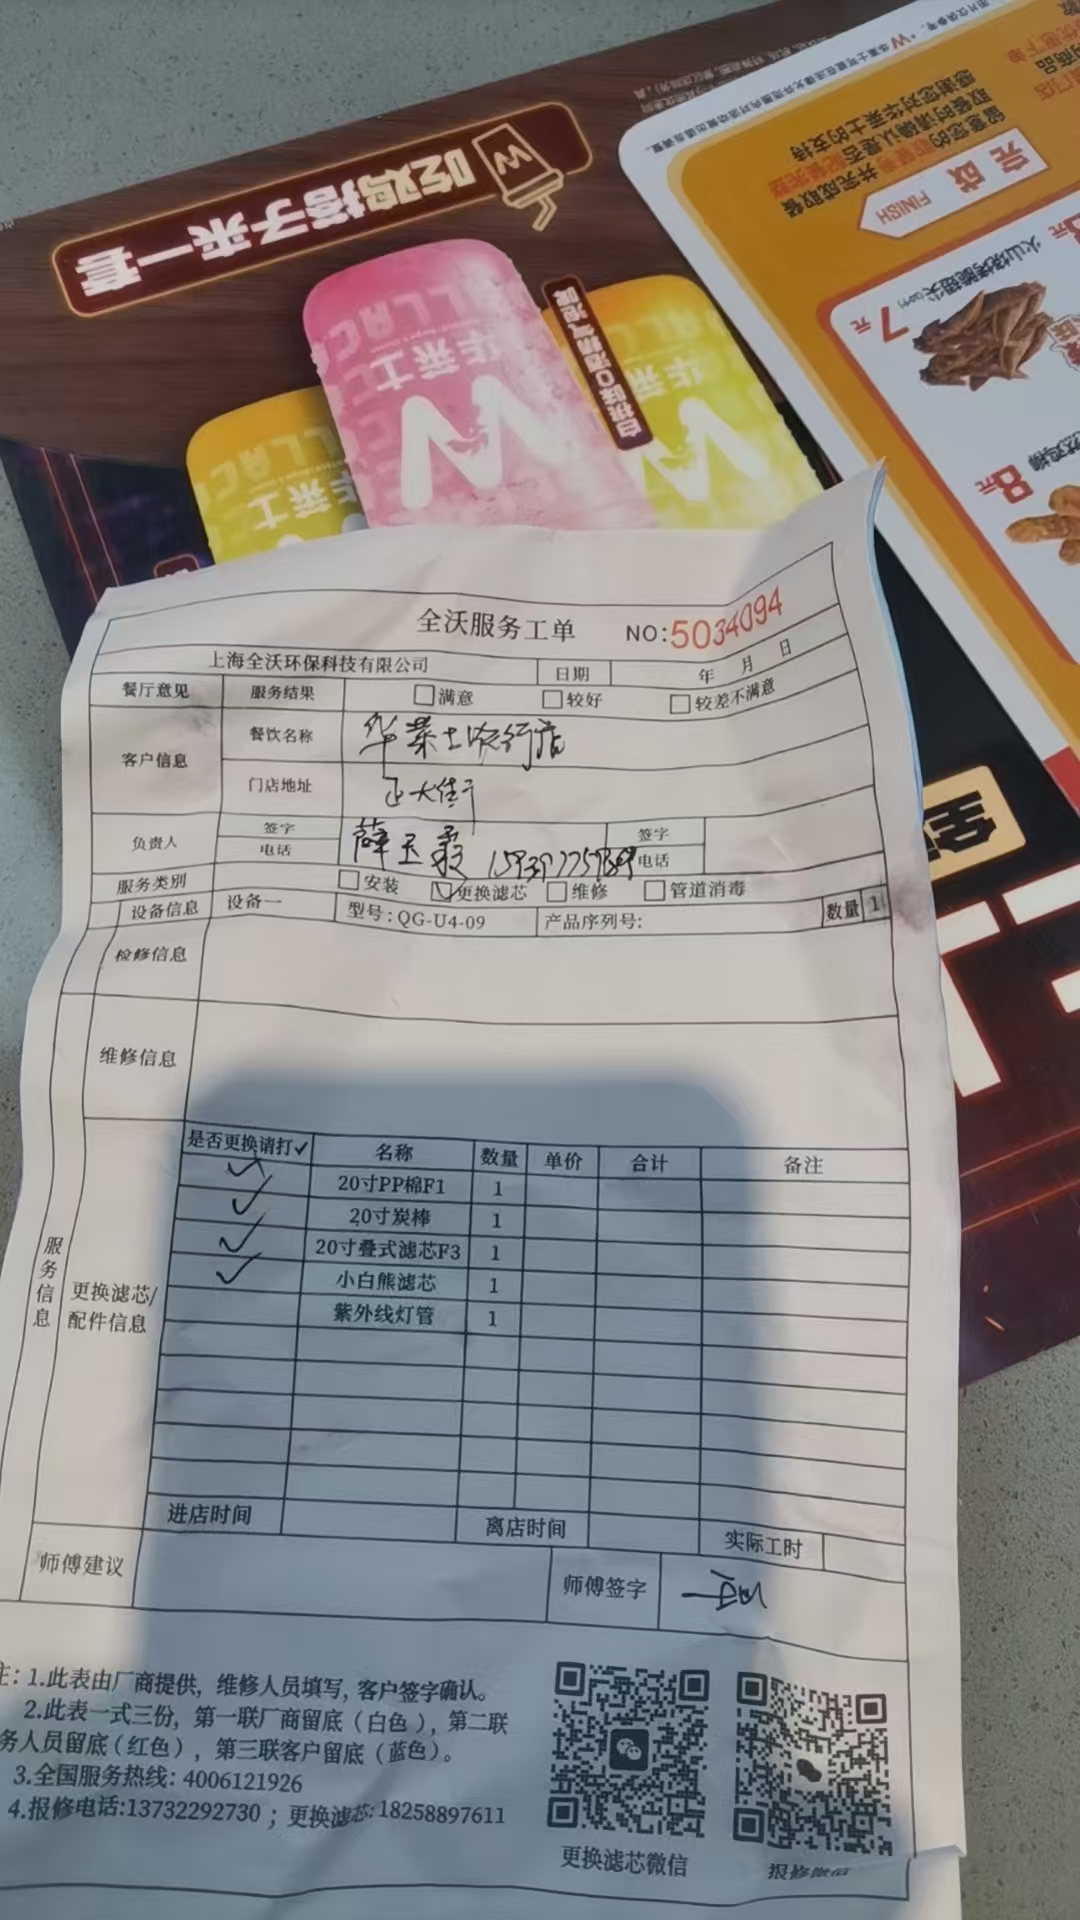 吃鸡搭子来一套
华莱士
华莱士
华莱士
完成
FINISH
留意您的取餐号 并完成取餐
取餐时请确认是否配餐完整
感谢您对华莱士的支持
7元
8元
全沃服务工单 NO:5034094
上海全沃环保科技有限公司 日期 年 月 日
餐厅意见 服务结果 满意 较好 较差不满意
客户信息 餐饮名称 华莱士农行店
门店地址 正大街
负责人 签字 薛玉霞 签字
电话 电话
服务类别 安装 更换滤芯 维修 管道消毒
设备信息 设备一 型号:QG-U4-09 产品序列号: 数量 1
检修信息
维修信息
服务信息
更换滤芯/配件信息
是否更换请打✓ 名称 数量 单价 合计 备注
✓ 20寸PP棉F1 1
✓ 20寸炭棒 1
✓ 20寸叠式滤芯F3 1
✓ 小白熊滤芯 1
紫外线灯管 1
进店时间 离店时间 实际工时
师傅建议 师傅签字
注: 1.此表由厂商提供, 维修人员填写, 客户签字确认。
2.此表一式三份, 第一联厂商留底(白色), 第二联
务人员留底(红色), 第三联客户留底(蓝色)。
3.全国服务热线: 4006121926
4.报修电话:13732292730 ; 更换滤芯:18258897611
更换滤芯微信
报修微信